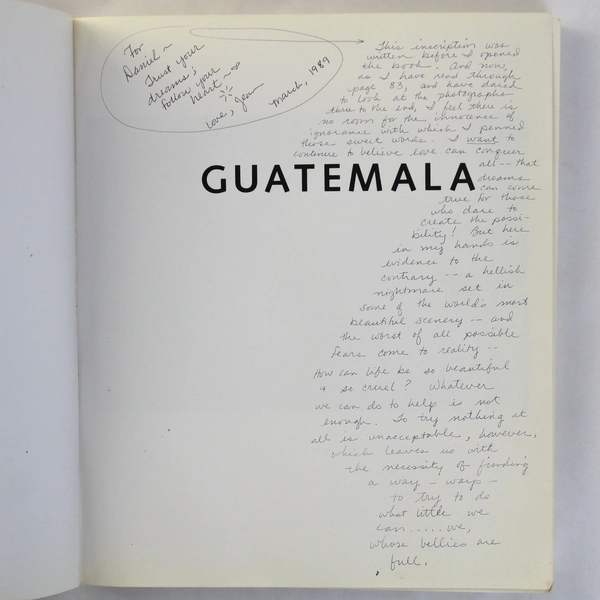 For
Daniel ~
Trust your
dreams;
Follow your
heart ~
Love, Jean
March, 1989
This inscription was
written before I opened
the book. And now,
as I have read through
page 83, and have dared
to look at the photographs
thru to the end, I feel there is
no room for the innocence of
ignorance with which I penned
those sweet words. I want to
continue to believe love can conquer
all -- that
GUATEMALA
dreams
can come
true for those
who dare to
create the possi-
bility! But here
in my hands is
evidence to the
contrary -- a hellish
nightmare set in
some of the world's most
beautiful scenery -- and
the worst of all possible
fears come to reality --
How can life be so beautiful
& so cruel? Whatever
we can do to help is not
enough. To try nothing at
all is unacceptable, however,
which leaves us with
the necessity of finding
a way - ways -
to try to do
what little we
can..... we,
whose bellies are
full.